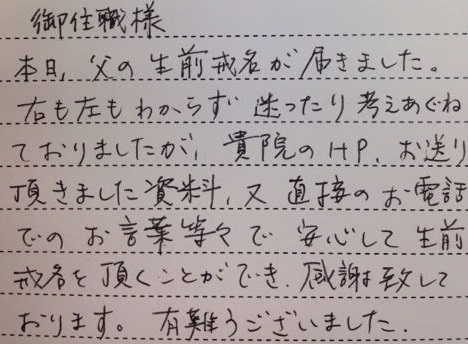 御住職様
本日、父の生前戒名が届きました。
右も左もわからず迷ったり考えあぐね
ておりましたが、貴院のHP、お送り
頂きました資料、又直接のお電話
でのお言葉等々で安心して生前
戒名を頂くことができ、感謝致して
おります。有難うございました。